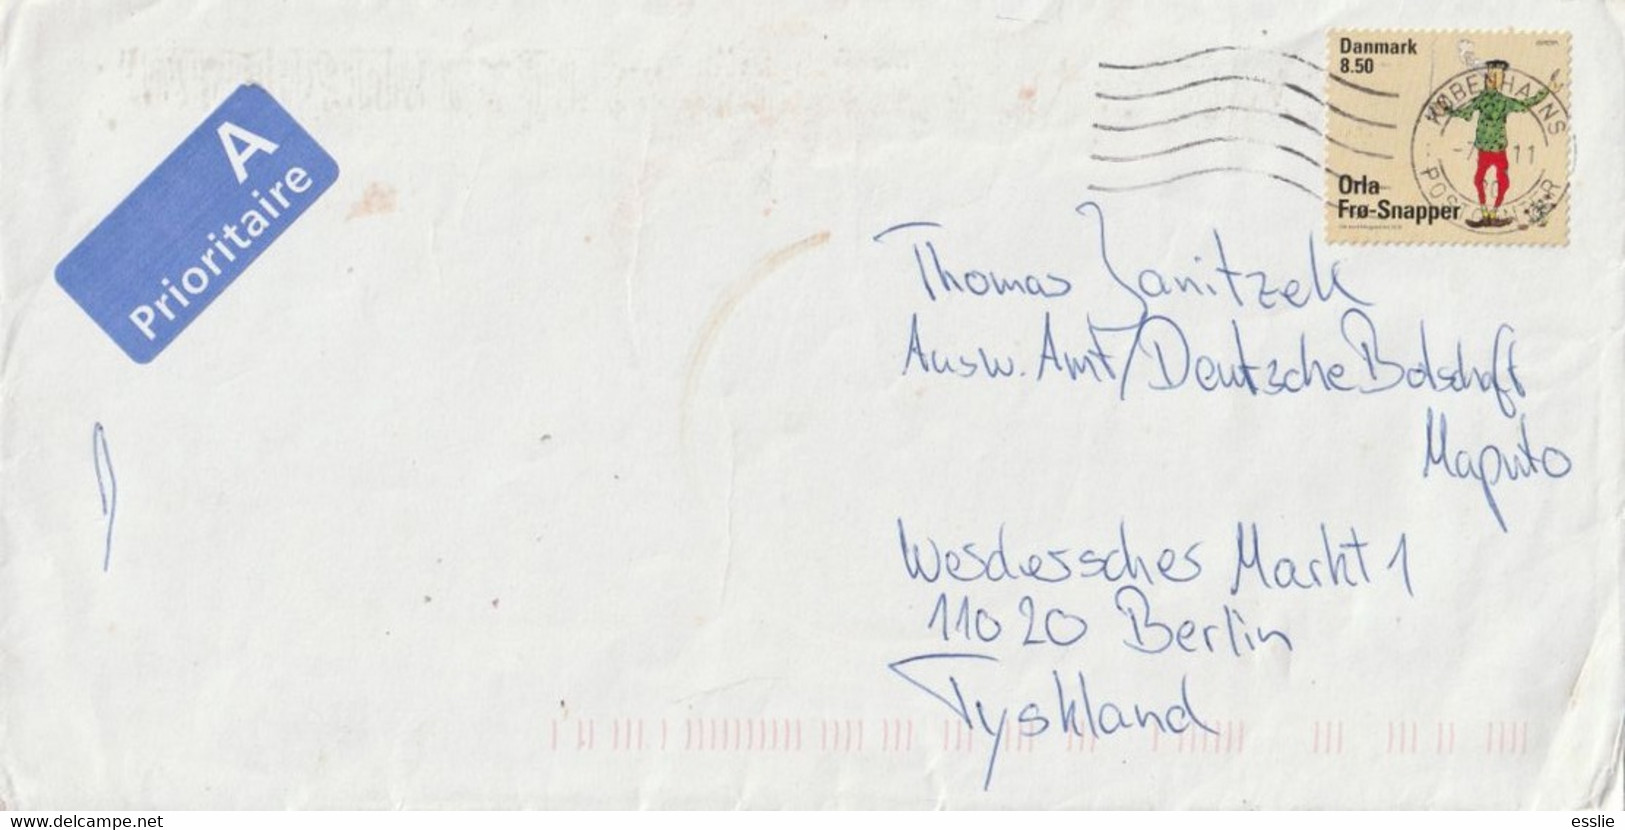 Danmark
8.50
A
Prioritaire
KØBENHAVNS
POSTCENTER
11
Orla
Frø-Snapper
Thomas Janitzek
Ausw. Amt/Deutsche Botschaft
Maputo
Wesderssches Markt 1
11020 Berlin
Tyskland
www.delcampe.net
esslie